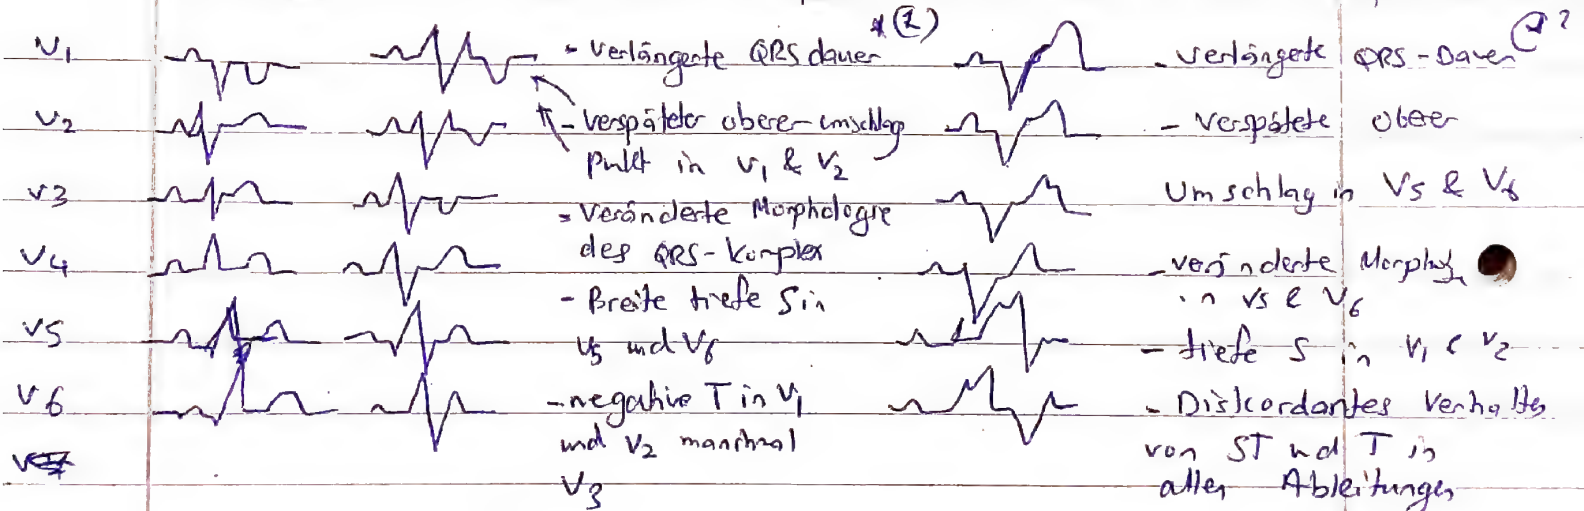 V1
V2
V3
V4
V5
V6
- Verlängerte QRS dauer *(1)
- Verspäteter oberer Umschlag
punkt in V1 & V2
- Veränderte Morphologie
des QRS-Komplex
- Breite tiefe S in
V5 und V6
- negative T in V1
und V2 manchmal
V3
- Verlängerte QRS-Dauer
- Verspätete oberer
Umschlag in V5 & V6
- veränderte Morpholg
in V5 & V6
- tiefe S in V1 & V2
- Diskordantes Verhalten
von ST und T in
allen Ableitungen